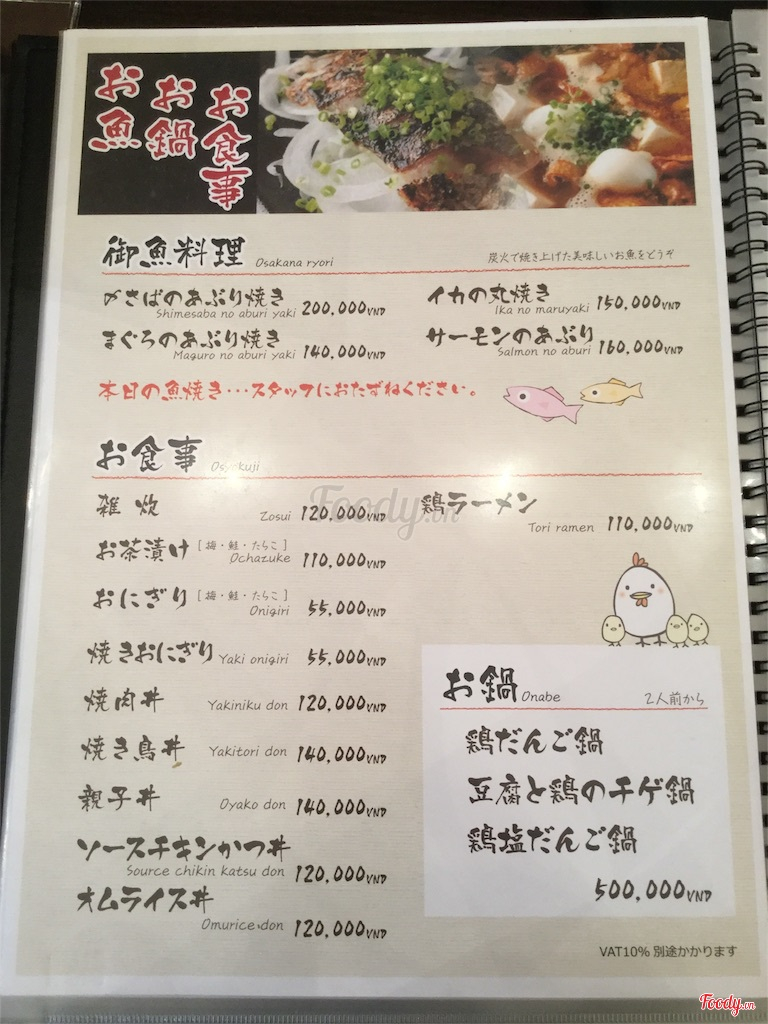 お魚
お鍋
お食事
御魚料理 Osakana ryori 炭火で焼き上げた美味しいお魚をどうぞ
〆さばのあぶり焼き
Shimesaba no aburi yaki 200,000VND
まぐろのあぶり焼き
Maguro no aburi yaki 140,000VND
イカの丸焼き
Ika no maruyaki 150,000VND
サーモンのあぶり
Salmon no aburi 160,000VND
本日の魚焼き・・・スタッフにおたずねください。
お食事 Osyokuji
雑炊 Zosui 120,000VND
お茶漬け [梅・鮭・たらこ]
Ochazuke 110,000VND
おにぎり [梅・鮭・たらこ]
Onigiri 55,000VND
焼きおにぎり Yaki onigiri 55,000VND
焼肉丼 Yakiniku don 120,000VND
焼き鳥丼 Yakitori don 140,000VND
親子丼 Oyako don 140,000VND
ソースチキンかつ丼
Source chikin katsu don 120,000VND
オムライス丼
Omurice don 120,000VND
鶏ラーメン
Tori ramen 110,000VND
お鍋 Onabe 2人前から
鶏だんご鍋
豆腐と鶏のチゲ鍋
鶏塩だんご鍋
500,000VND
VAT10% 別途かかります
Foody.vn
Foody.vn